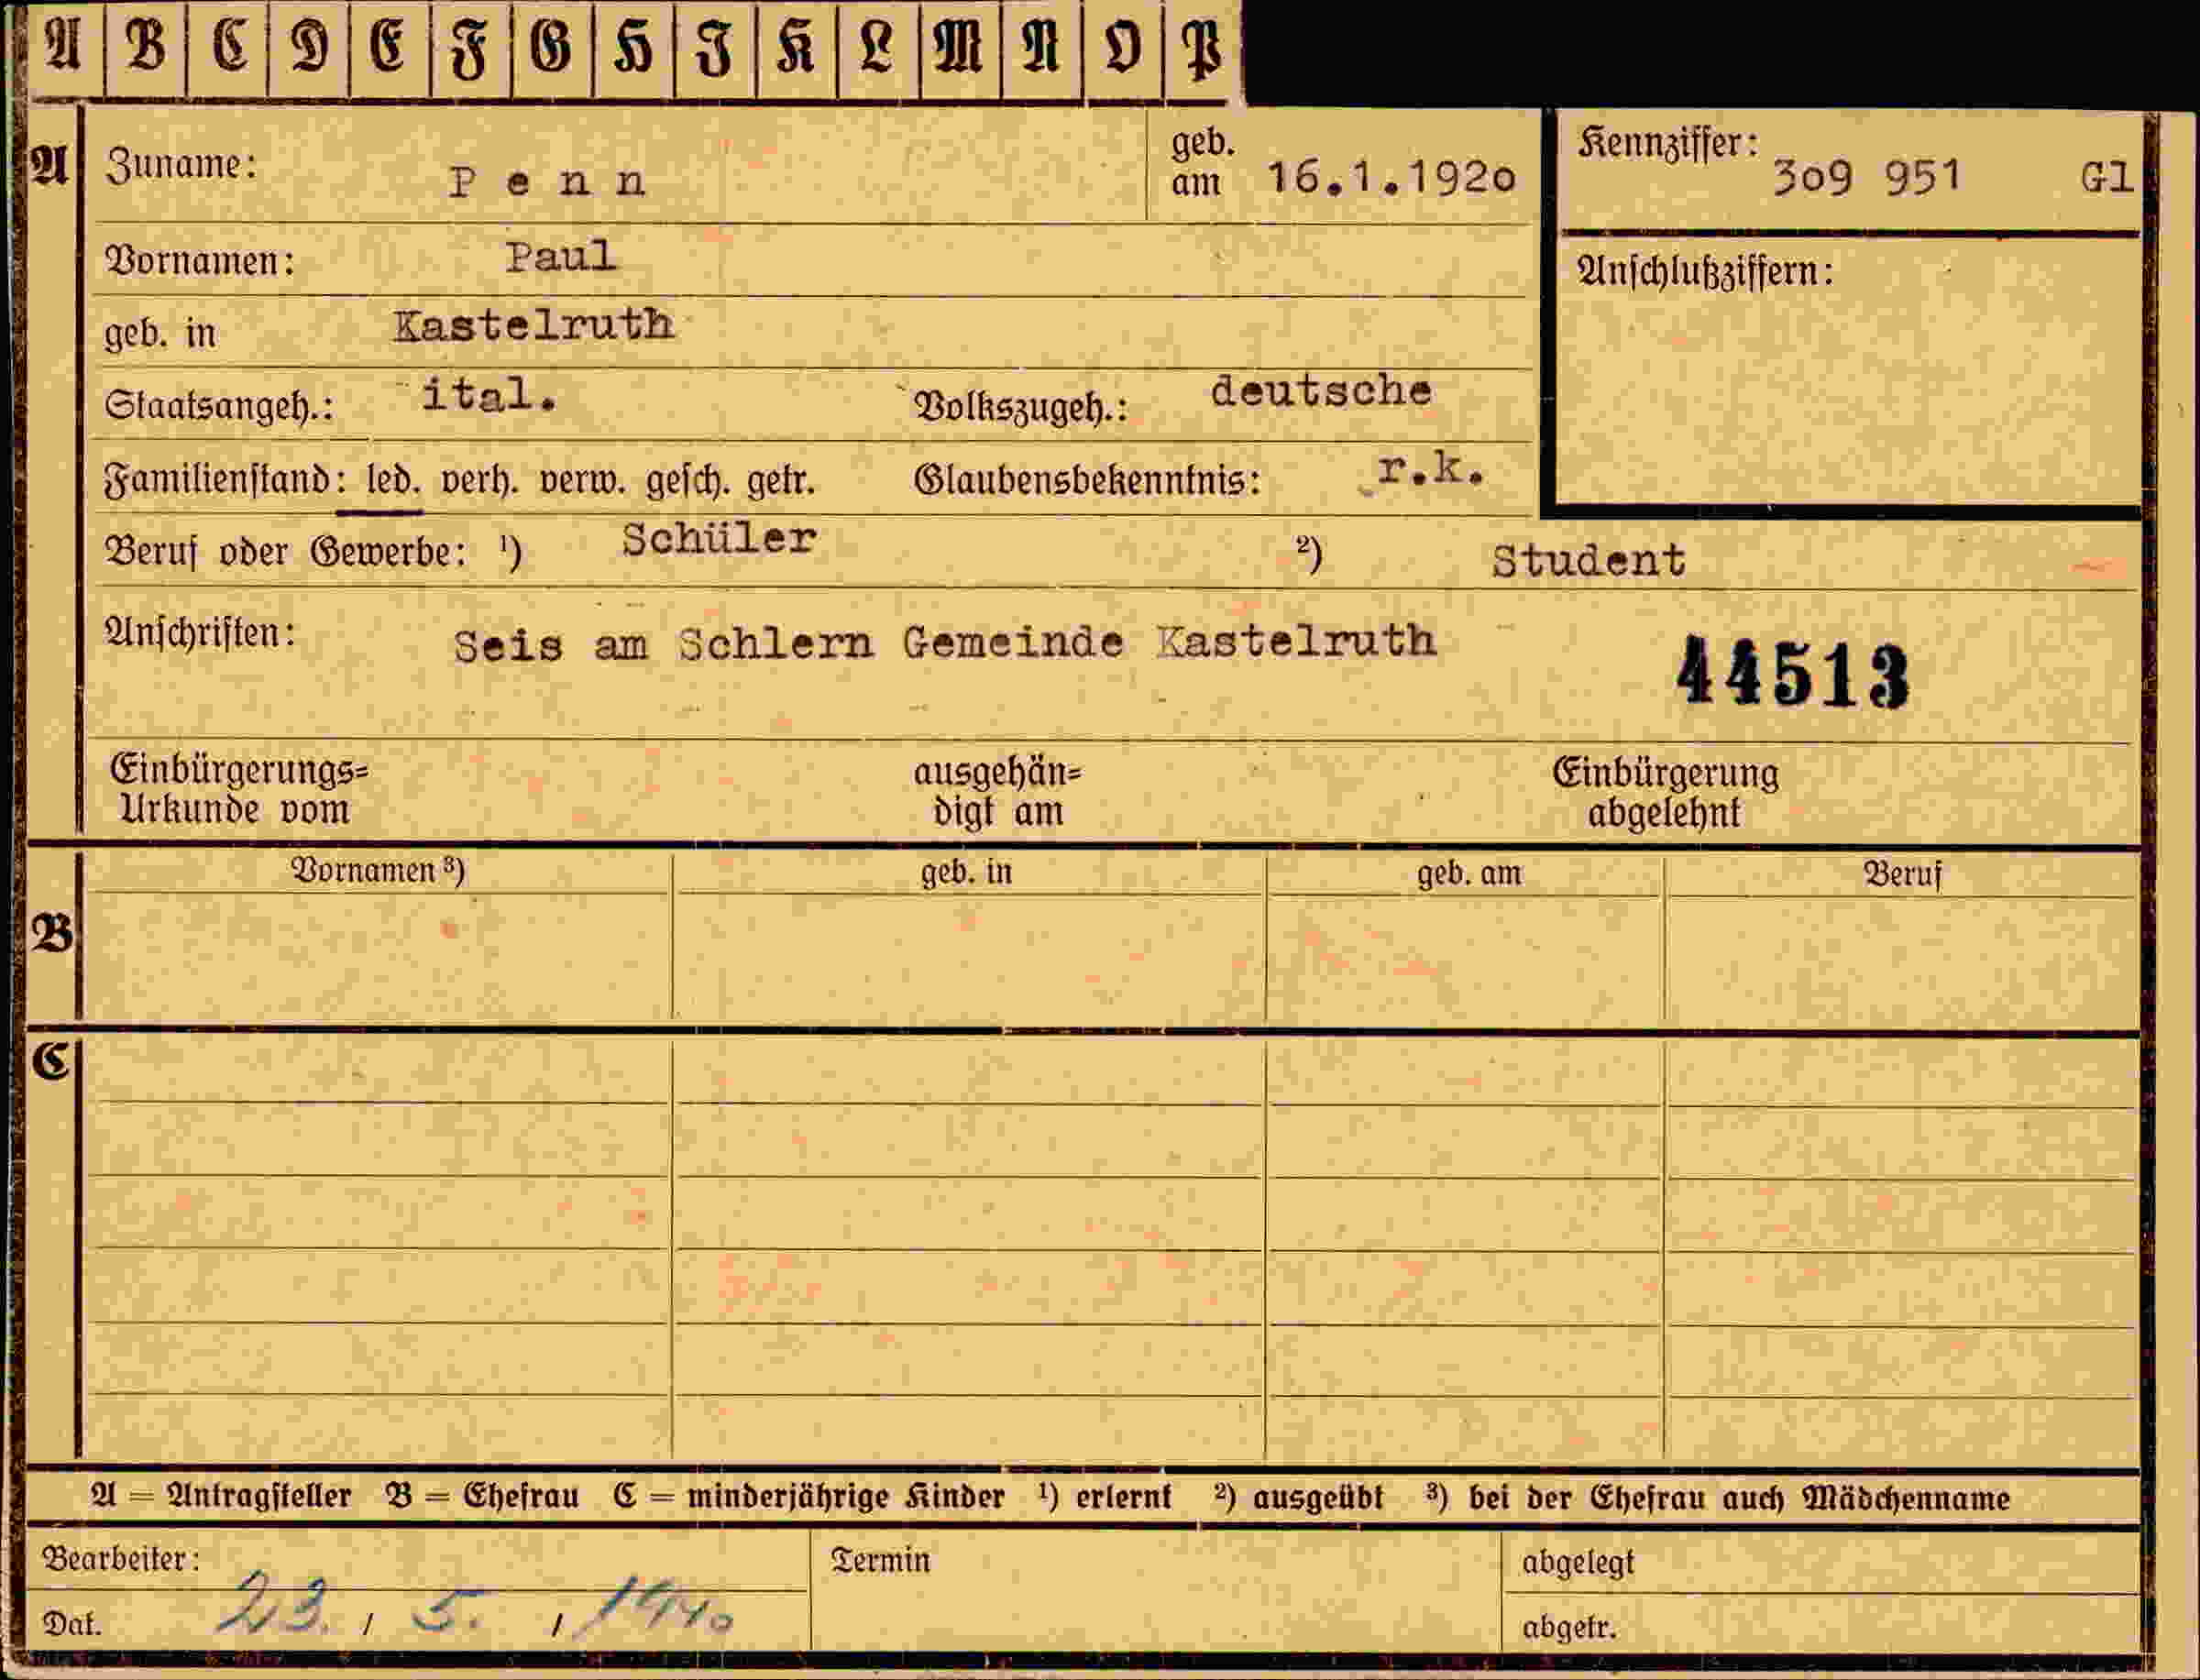 A B C D E F G H J K L M N O P
A Zuname: Penn geb. am 16.1.1920 Kennziffer: 309 951 Gl
Vornamen: Paul Anschlußziffern:
geb. in Kastelruth
Staatsangeh.: ital. Volkszugeh.: deutsche
Familienstand: led. verh. verw. gesch. getr. Glaubensbekenntnis: r.k.
Beruf oder Gewerbe: ¹) Schüler ²) Student
Anschriften: Seis am Schlern Gemeinde Kastelruth 44513
Einbürgerungs= ausgehän= Einbürgerung
Urkunde vom digt am abgelehnt
Vornamen ³) geb. in geb. am Beruf
B
C
A = Antragsteller B = Ehefrau C = minderjährige Kinder ¹) erlernt ²) ausgeübt ³) bei der Ehefrau auch Mädchenname
Bearbeiter: Termin abgelegt
Dat. 23. / 5. / 1940 abgetr.